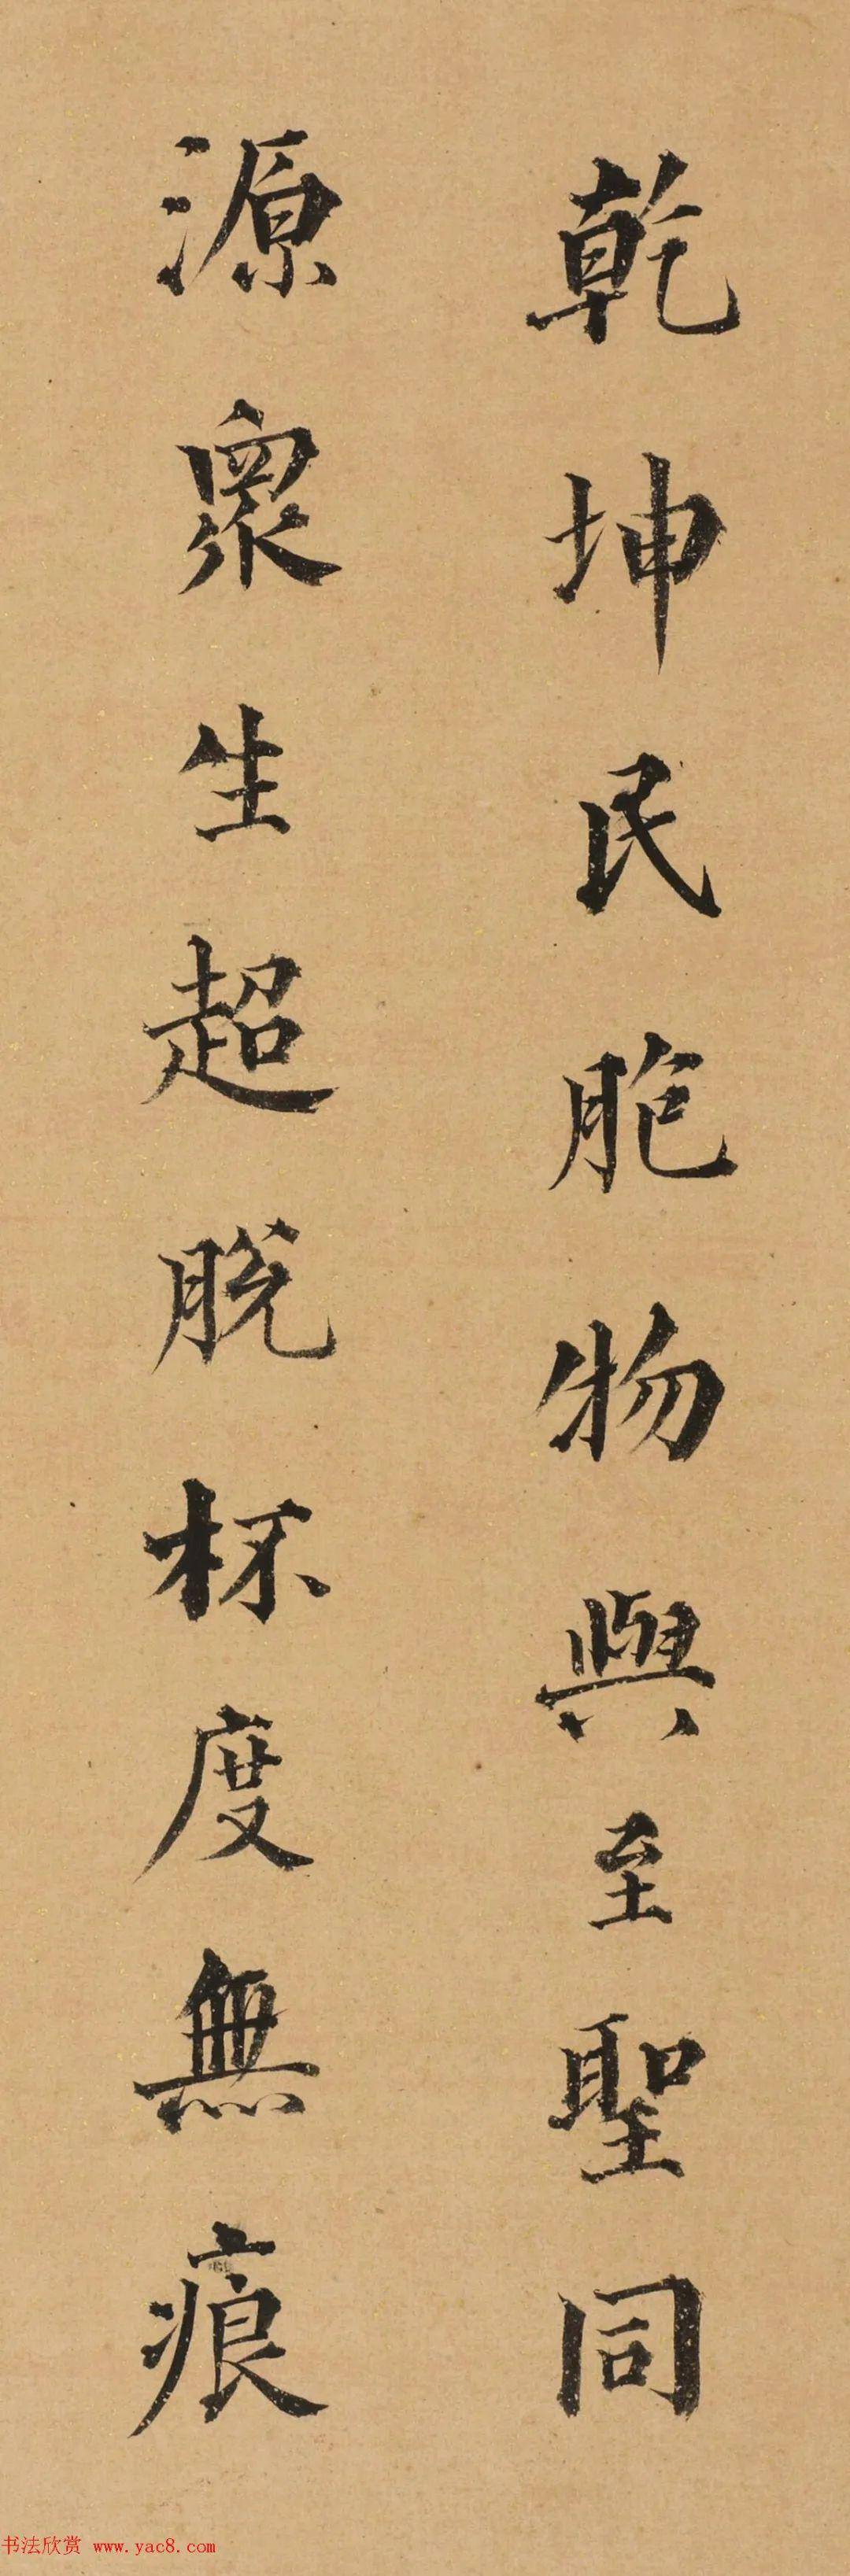 乾坤民胞物與至聖同
源衆生超脱杯度無痕
书法欣赏 www.yac8.com